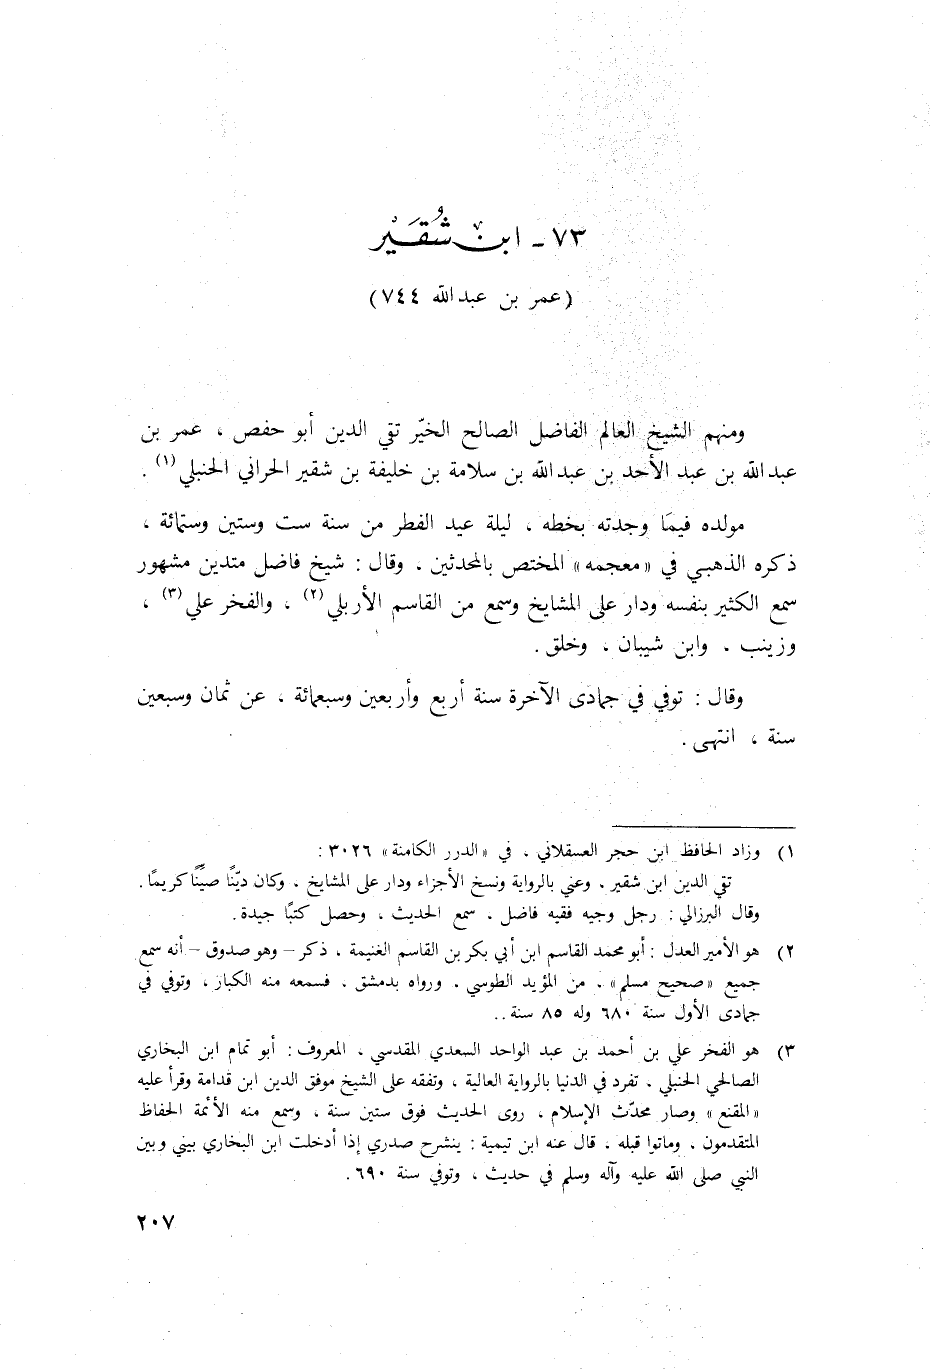 ٧٣ - ابن شُقَيْر
(عمر بن عبدالله ٧٤٤)
ومنهم الشيخ العالم الفاضل الصالح الخيّر تقي الدين أبو حفص ، عمر بن
عبدالله بن عبد الأحد بن عبدالله بن سلامة بن خليفة بن شقير الحراني الحنبلي(١) .
مولده فيما وجدته بخطه ، ليلة عيد الفطر من سنة ست وستين وستمائة ،
ذكره الذهبي في «معجمه» المختص بالمحدثين . وقال : شيخ فاضل متدين مشهور
سمع الكثير بنفسه ودار على المشايخ وسمع من القاسم الأربلي(٢) ، والفخر علي(٣) ،
وزينب ، وابن شيبان ، وخلق .
وقال : توفي في جمادى الآخرة سنة أربع وأربعين وسبعمائة ، عن ثمان وسبعين
سنة ، انتهى .
١) وزاد الحافظ ابن حجر العسقلاني ، في «الدرر الكامنة» ٣٠٢٦ :
تقي الدين ابن شقير ، وعني بالرواية ونسخ الأجزاء ودار على المشايخ ، وكان ديّنًا صيّنًا كريمًا .
وقال البرزالي : رجل وجيه فقيه فاضل ، سمع الحديث ، وحصل كتبًا جيدة .
٢) هو الأمير العدل : أبو محمد القاسم ابن أبي بكر بن القاسم الغنيمة ، ذكر - وهو صدوق - أنه سمع
جميع «صحيح مسلم» . من المؤيد الطوسي . ورواه بدمشق . فسمعه منه الكبار ، وتوفي في
جمادى الأول سنة ٦٨٠ وله ٨٥ سنة ..
٣) هو الفخر علي بن أحمد بن عبد الواحد السعدي المقدسي ، المعروف : أبو تمام ابن البخاري
الصالحي الحنبلي ، تفرد في الدنيا بالرواية العالية ، وتفقه على الشيخ موفق الدين ابن قدامة وقرأ عليه
«المقنع» وصار محدّث الإسلام ، روى الحديث فوق ستين سنة ، وسمع منه الأئمة الحفاظ
المتقدمون . وماتوا قبله . قال عنه ابن تيمية : ينشرح صدري إذا أدخلت ابن البخاري بيني وبين
النبي صلى الله عليه وآله وسلم في حديث ، وتوفي سنة ٦٩٠ .
٢٠٧